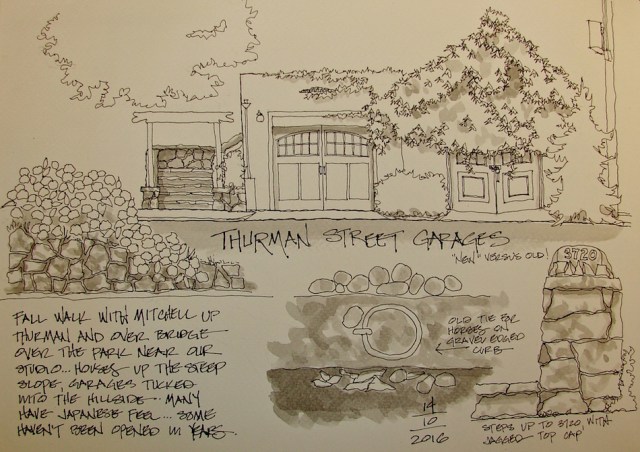 THURMAN STREET GARAGES
"NEW" VERSUS OLD!
3720
FALL WALK WITH MITCHELL UP
THURMAN AND OVER BRIDGE
OVER THE PARK NEAR OUR
STUDIO... HOUSES UP THE STEEP
SLOPE, GARAGES TUCKED
INTO THE HILLSIDE... MANY
HAVE JAPANESE FEEL... SOME
HAVEN'T BEEN OPENED IN YEARS.
OLD TIE FOR
HORSES ON
GRAVEL EDGED
CURB
14
10
2016
STEPS UP TO 3720, WITH
JAGGED TOP CAP